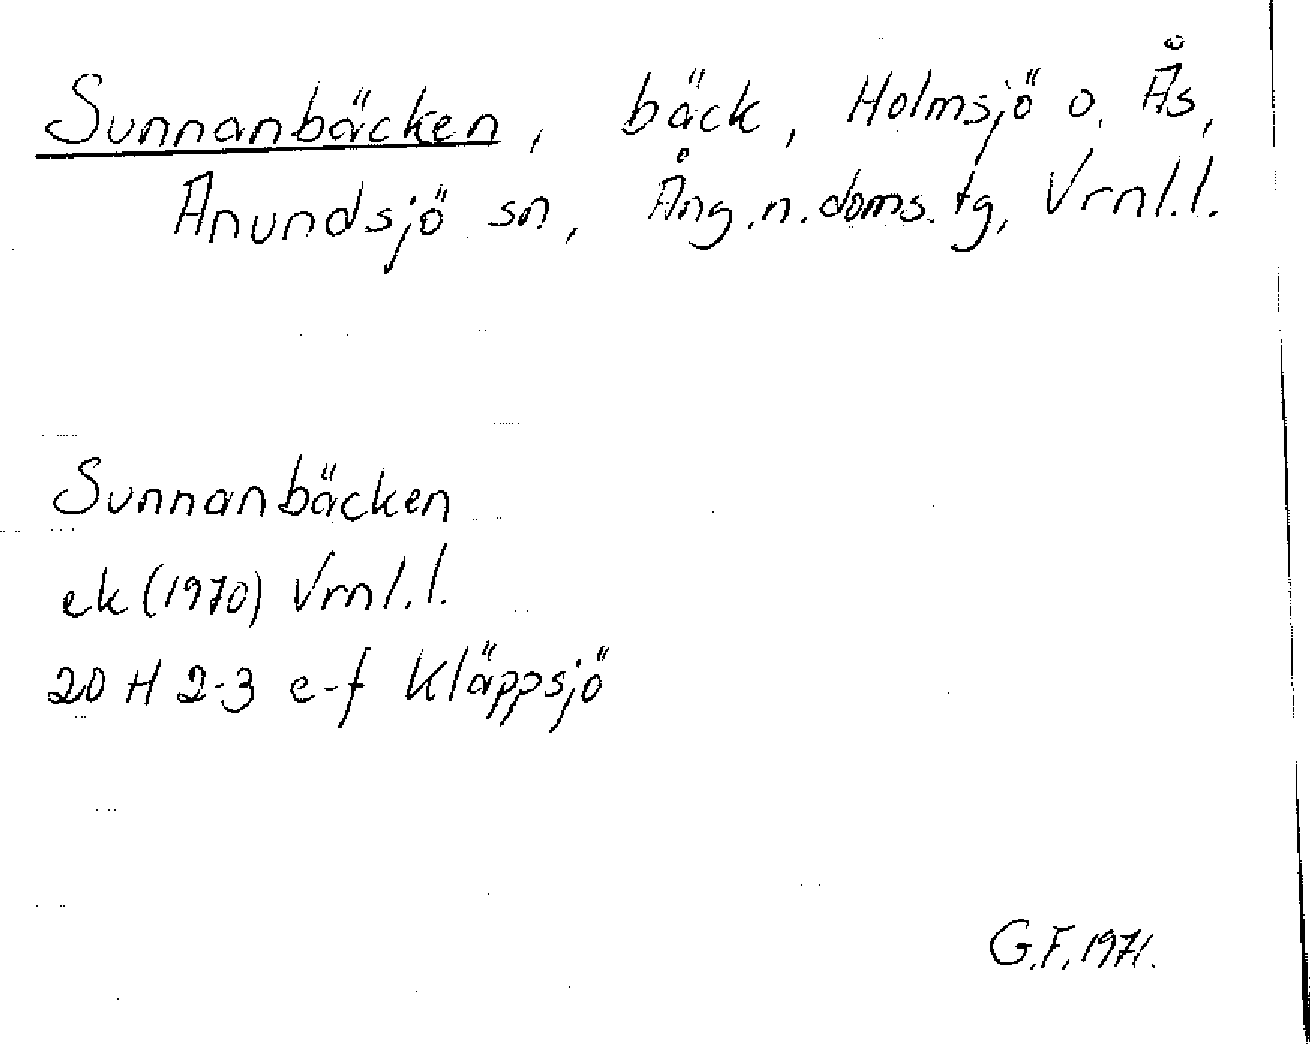 Sunnanbäcken, bäck, Holmsjö o. Ås,
Anundsjö sn, Ång.n.doms.tg, Vrnl.l.
Sunnanbäcken
ek (1970) Vrnl.l.
20 H 2-3 e-f Kläppsjö
G.F. 1971.